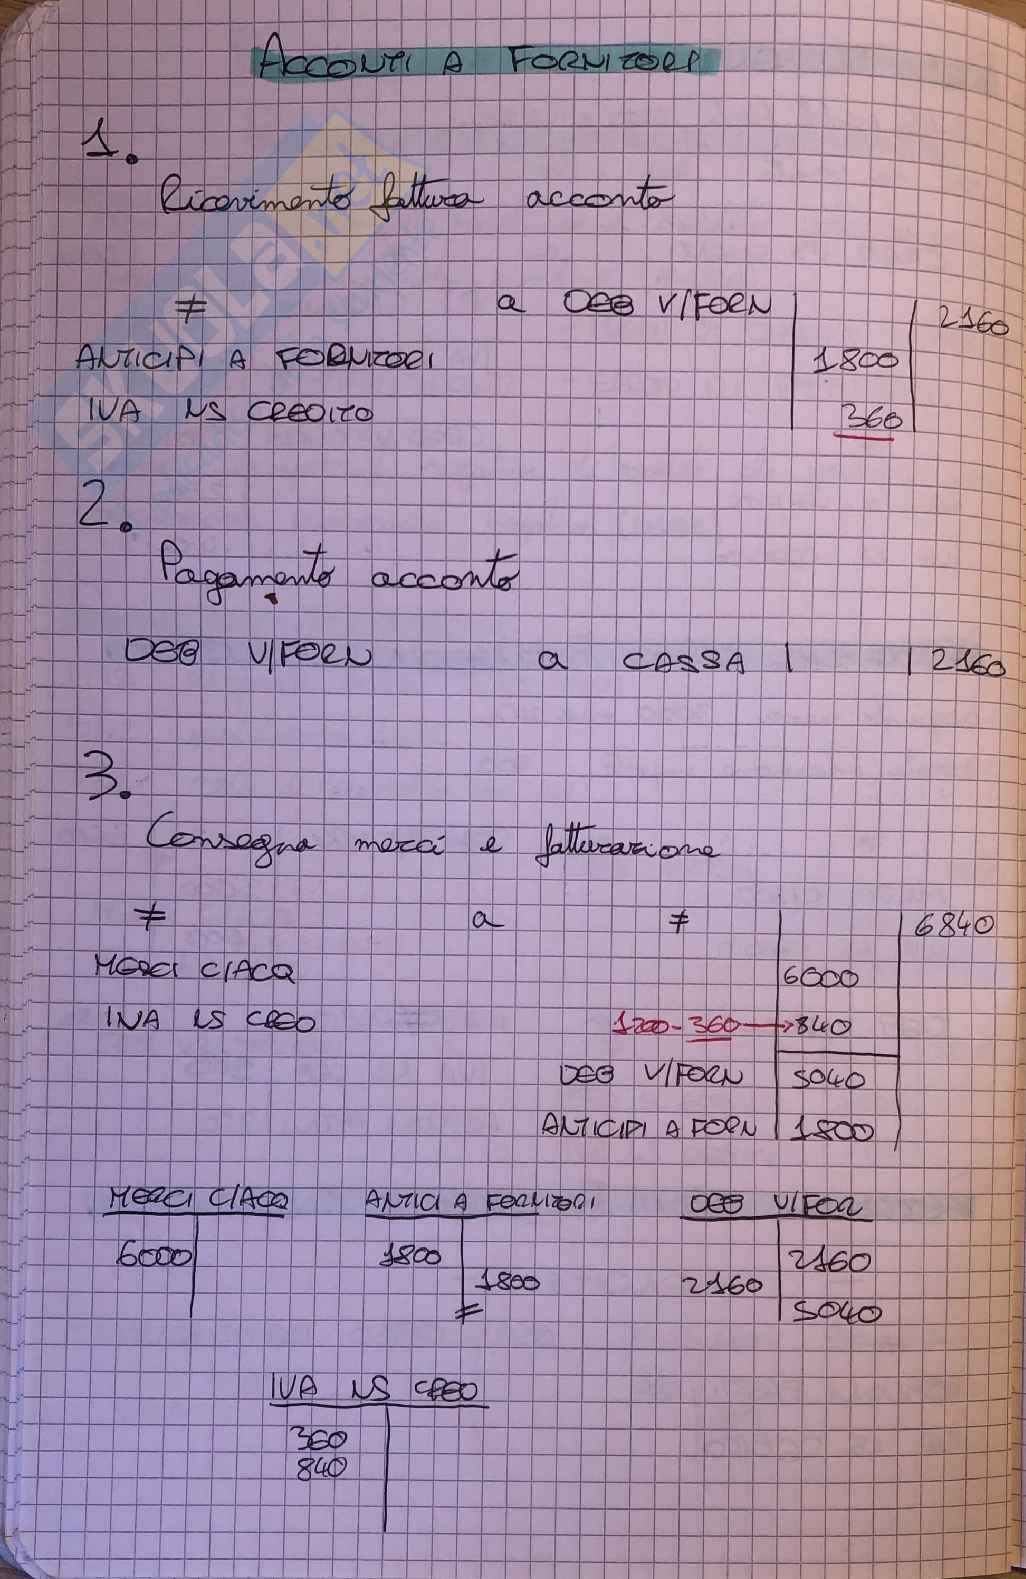 ACCONTI A FORNITORI
1.
Ricevimento fattura acconto
≠ a DEB V/FORN 2160
ANTICIPI A FORNITORI 1800
IVA NS CREDITO 360
2.
Pagamento acconto
DEB V/FORN a CASSA 2160
3.
Consegna merci e fatturazione
≠ a ≠ 6840
MERCI C/ACQ 6000
IVA NS CRED 1200-360→840
DEB V/FORN 5040
ANTICIPI A FORN 1800
MERCI C/ACQ ANTICI A FORNITORI DEB V/FOR
6000 1800 2160
1800 2160
≠ 5040
IVA NS CRED
360
840
SKUOLA.net